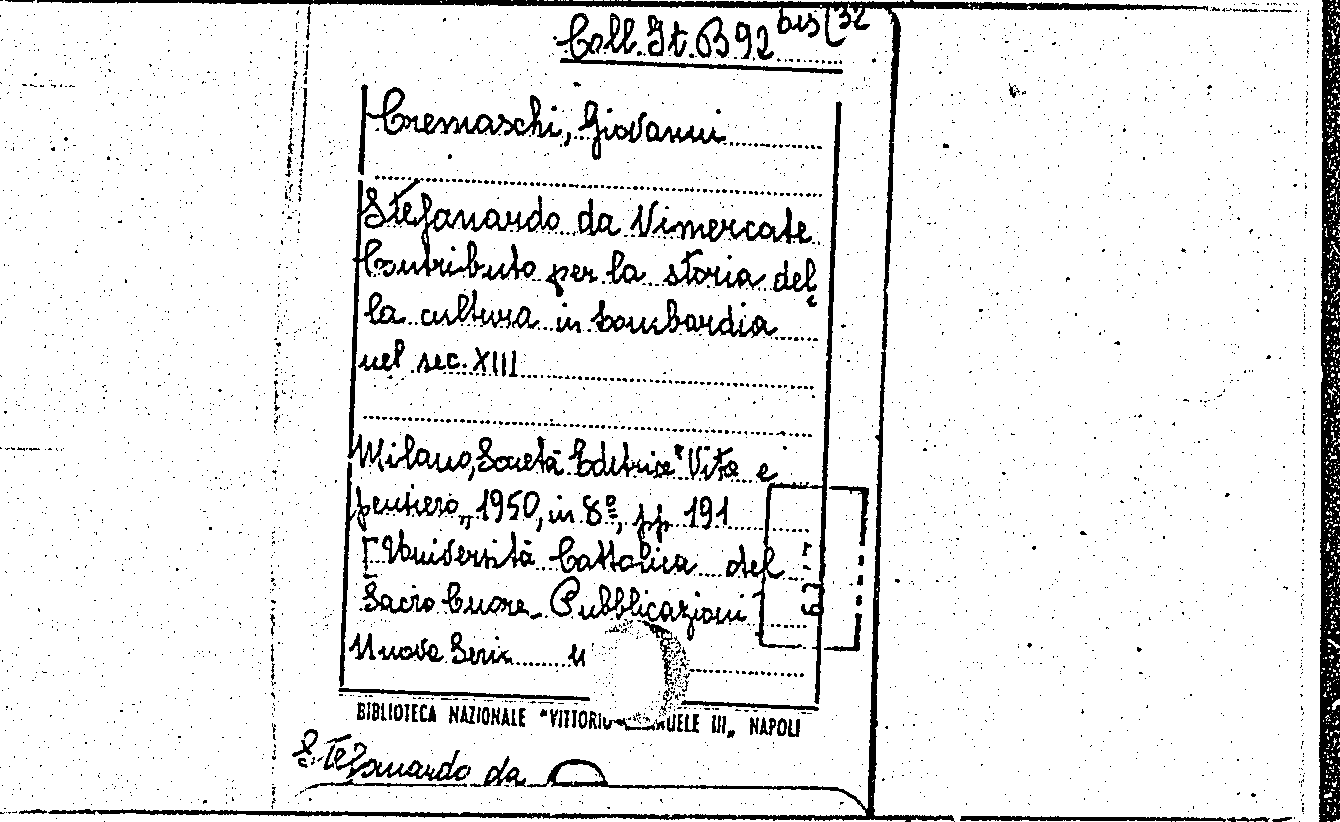 Coll. It. B 92 bis (32
Cremaschi, Giovanni
Stefanardo da Vimercate
Contributo per la storia del=
la cultura in Lombardia
nel sec. XIII
Milano, Società Editrice "Vita e
pensiero„ 1950, in 8º, pp. 191
[Università Cattolica del
Sacro Cuore_ Pubblicazioni
Nuova Serie
BIBLIOTECA NAZIONALE "VITTORIO UELE III„ NAPOLI
Stefanardo da